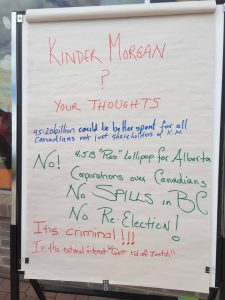 KINDER MORGAN
?
YOUR THOUGHTS
4.5-20 billion could be better spent for all
Canadians not just shareholders of K.M.
No! 4.5B "Red" Lollipop for Alberta
Corporations over Canadians
No SPILLS in BC
No Re-Election!
It's criminal!!!
In the national interest "Get rid of Justin"